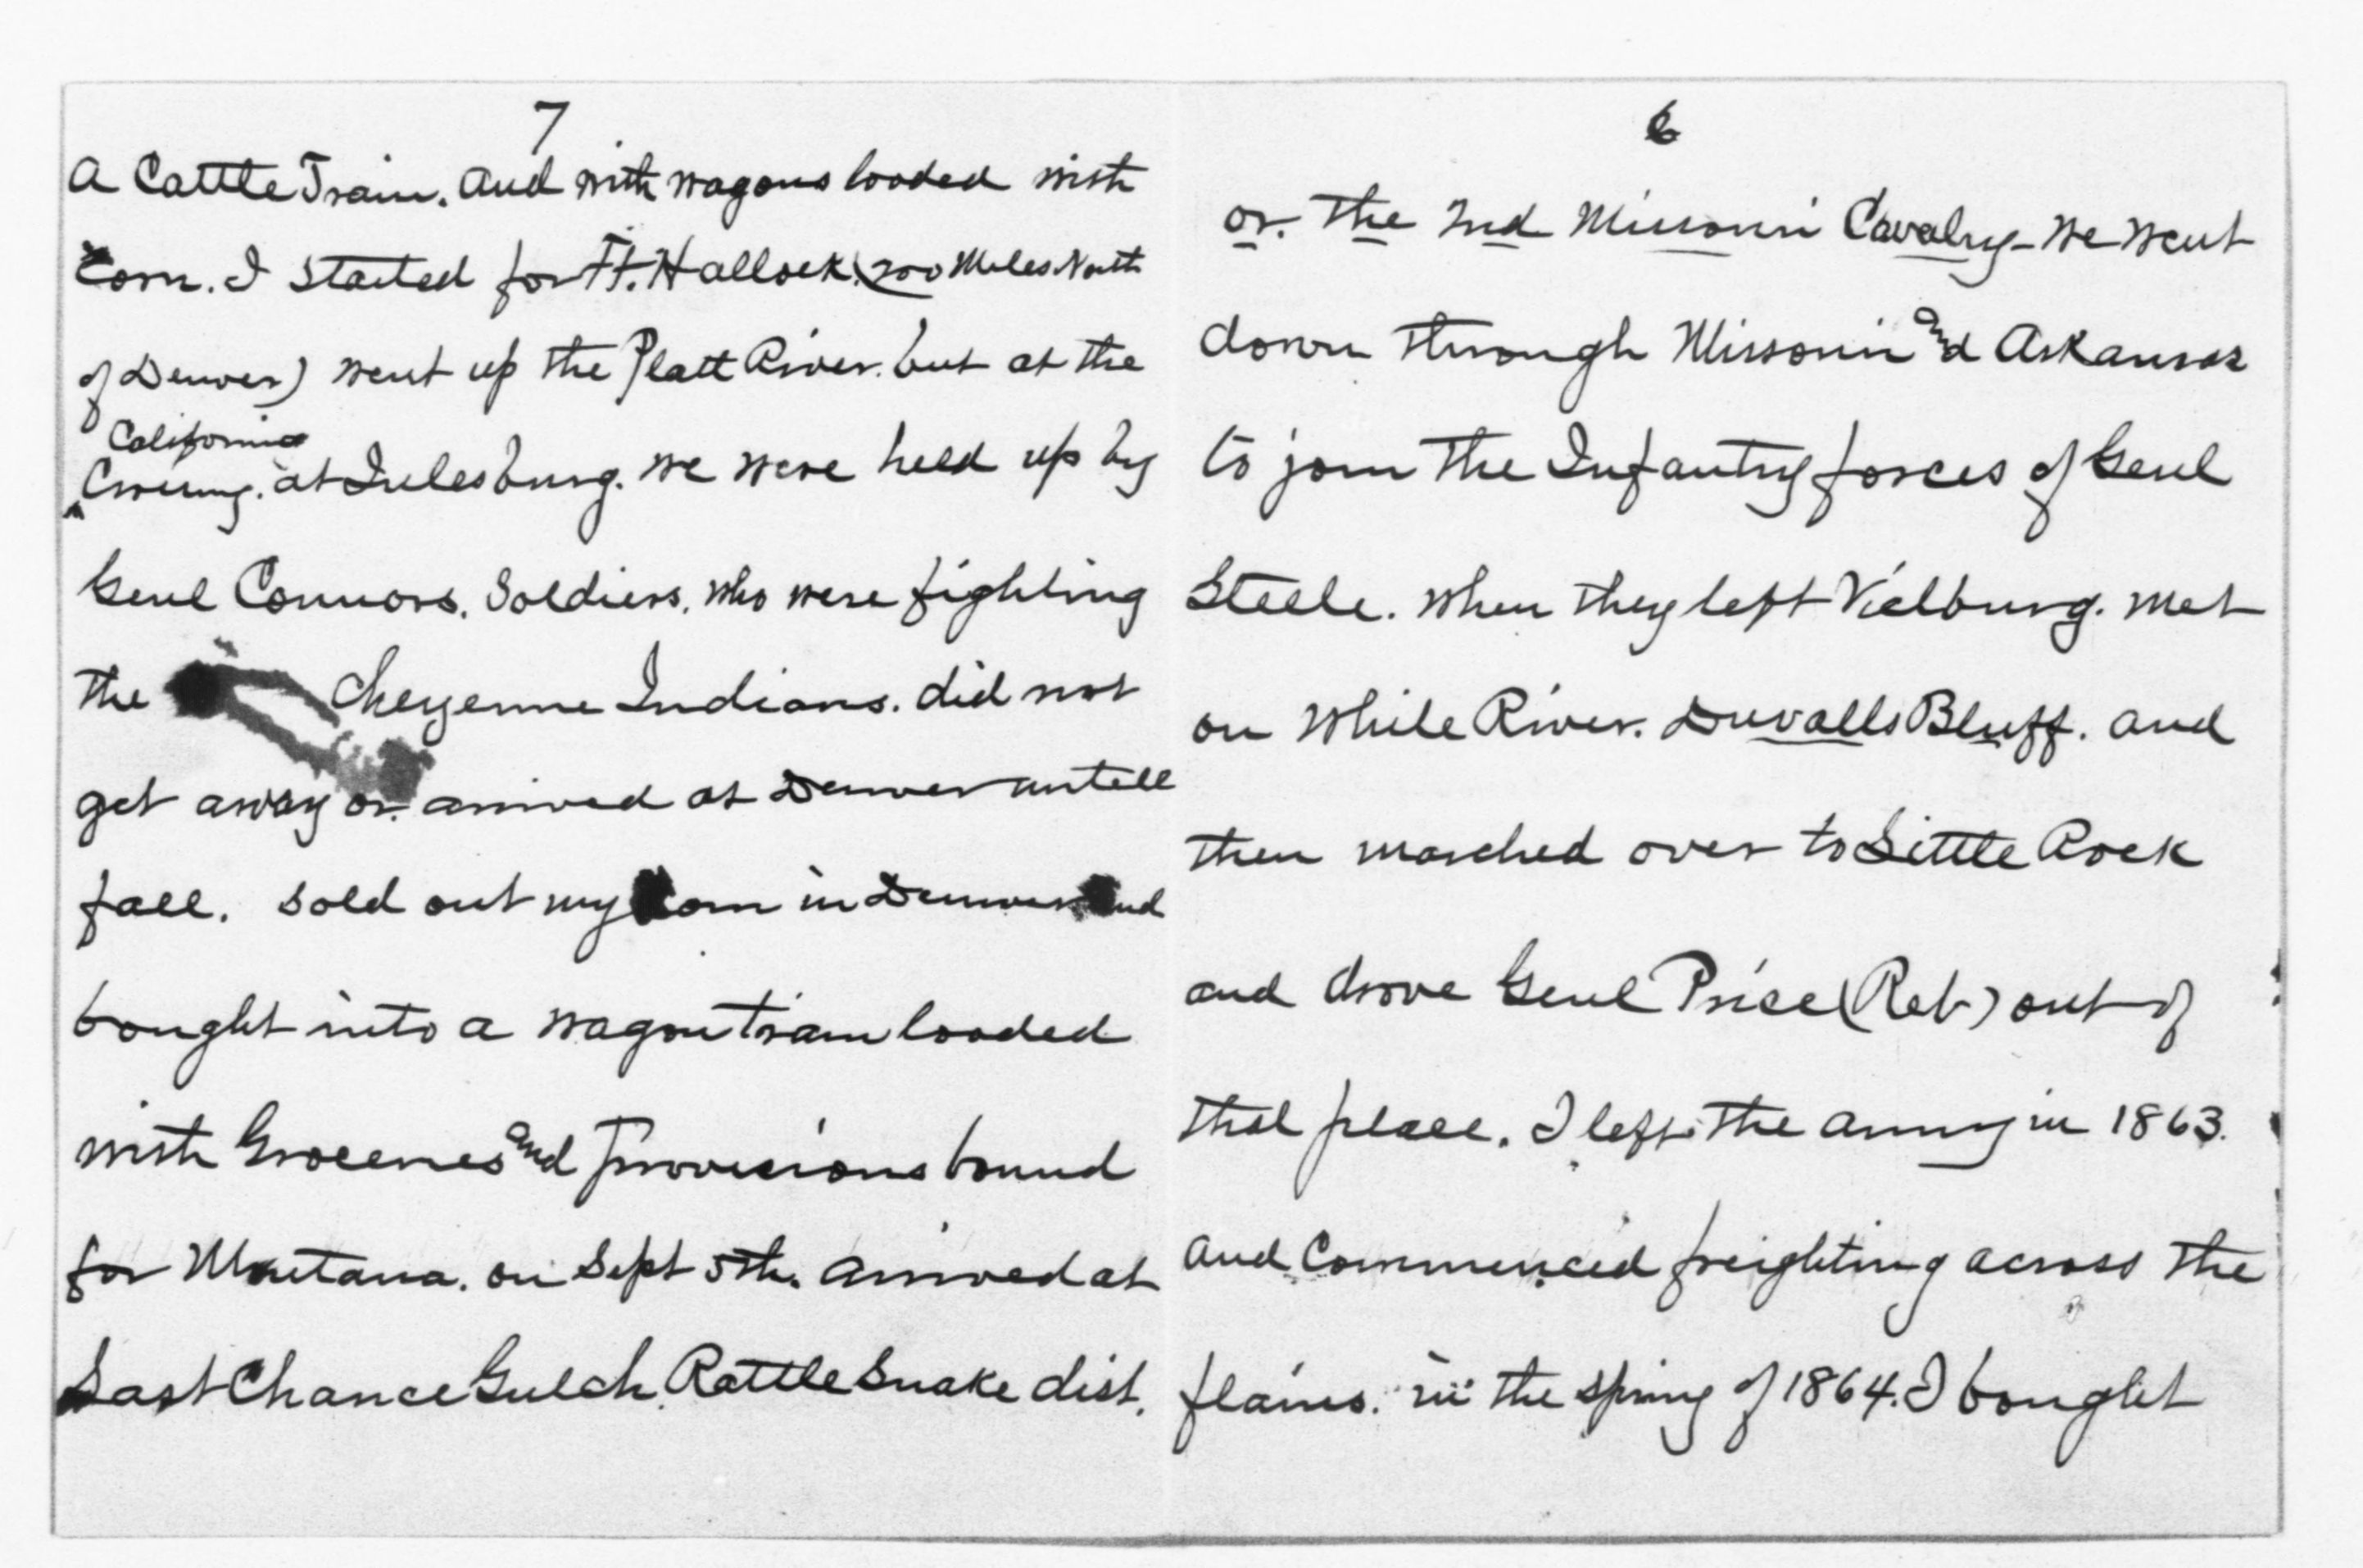 6
or. The 2nd Missouri Cavalry - we went
down through Missouri and Arkansas
to join the Infantry forces of Genl
Steele. when they left Vicburg. met
on White River. Duvalls Bluff. and
then marched over to Little Rock
and drove Genl Price (Reb) out of
that place. I left the army in 1863.
and Commenced freighting across the
plains. in the spring of 1864. I bought
7
a Cattle Train. and with wagons loaded with
Corn. I started for Ft. Hallock. (200 Miles North
of Denver) went up the Platt River. but at the
California
Crossing. at Julesburg. we were held up by
Genl Connors. Soldiers. who were fighting
the Cheyenne Indians. did not
get away or. arrived at Denver untill
fall. sold out my Corn in Denver and
bought into a wagon train loaded
with Groceries and provisions bound
for Montana. on Sept 5th. arrived at
Last Chance Gulch. Rattle Snake dist.